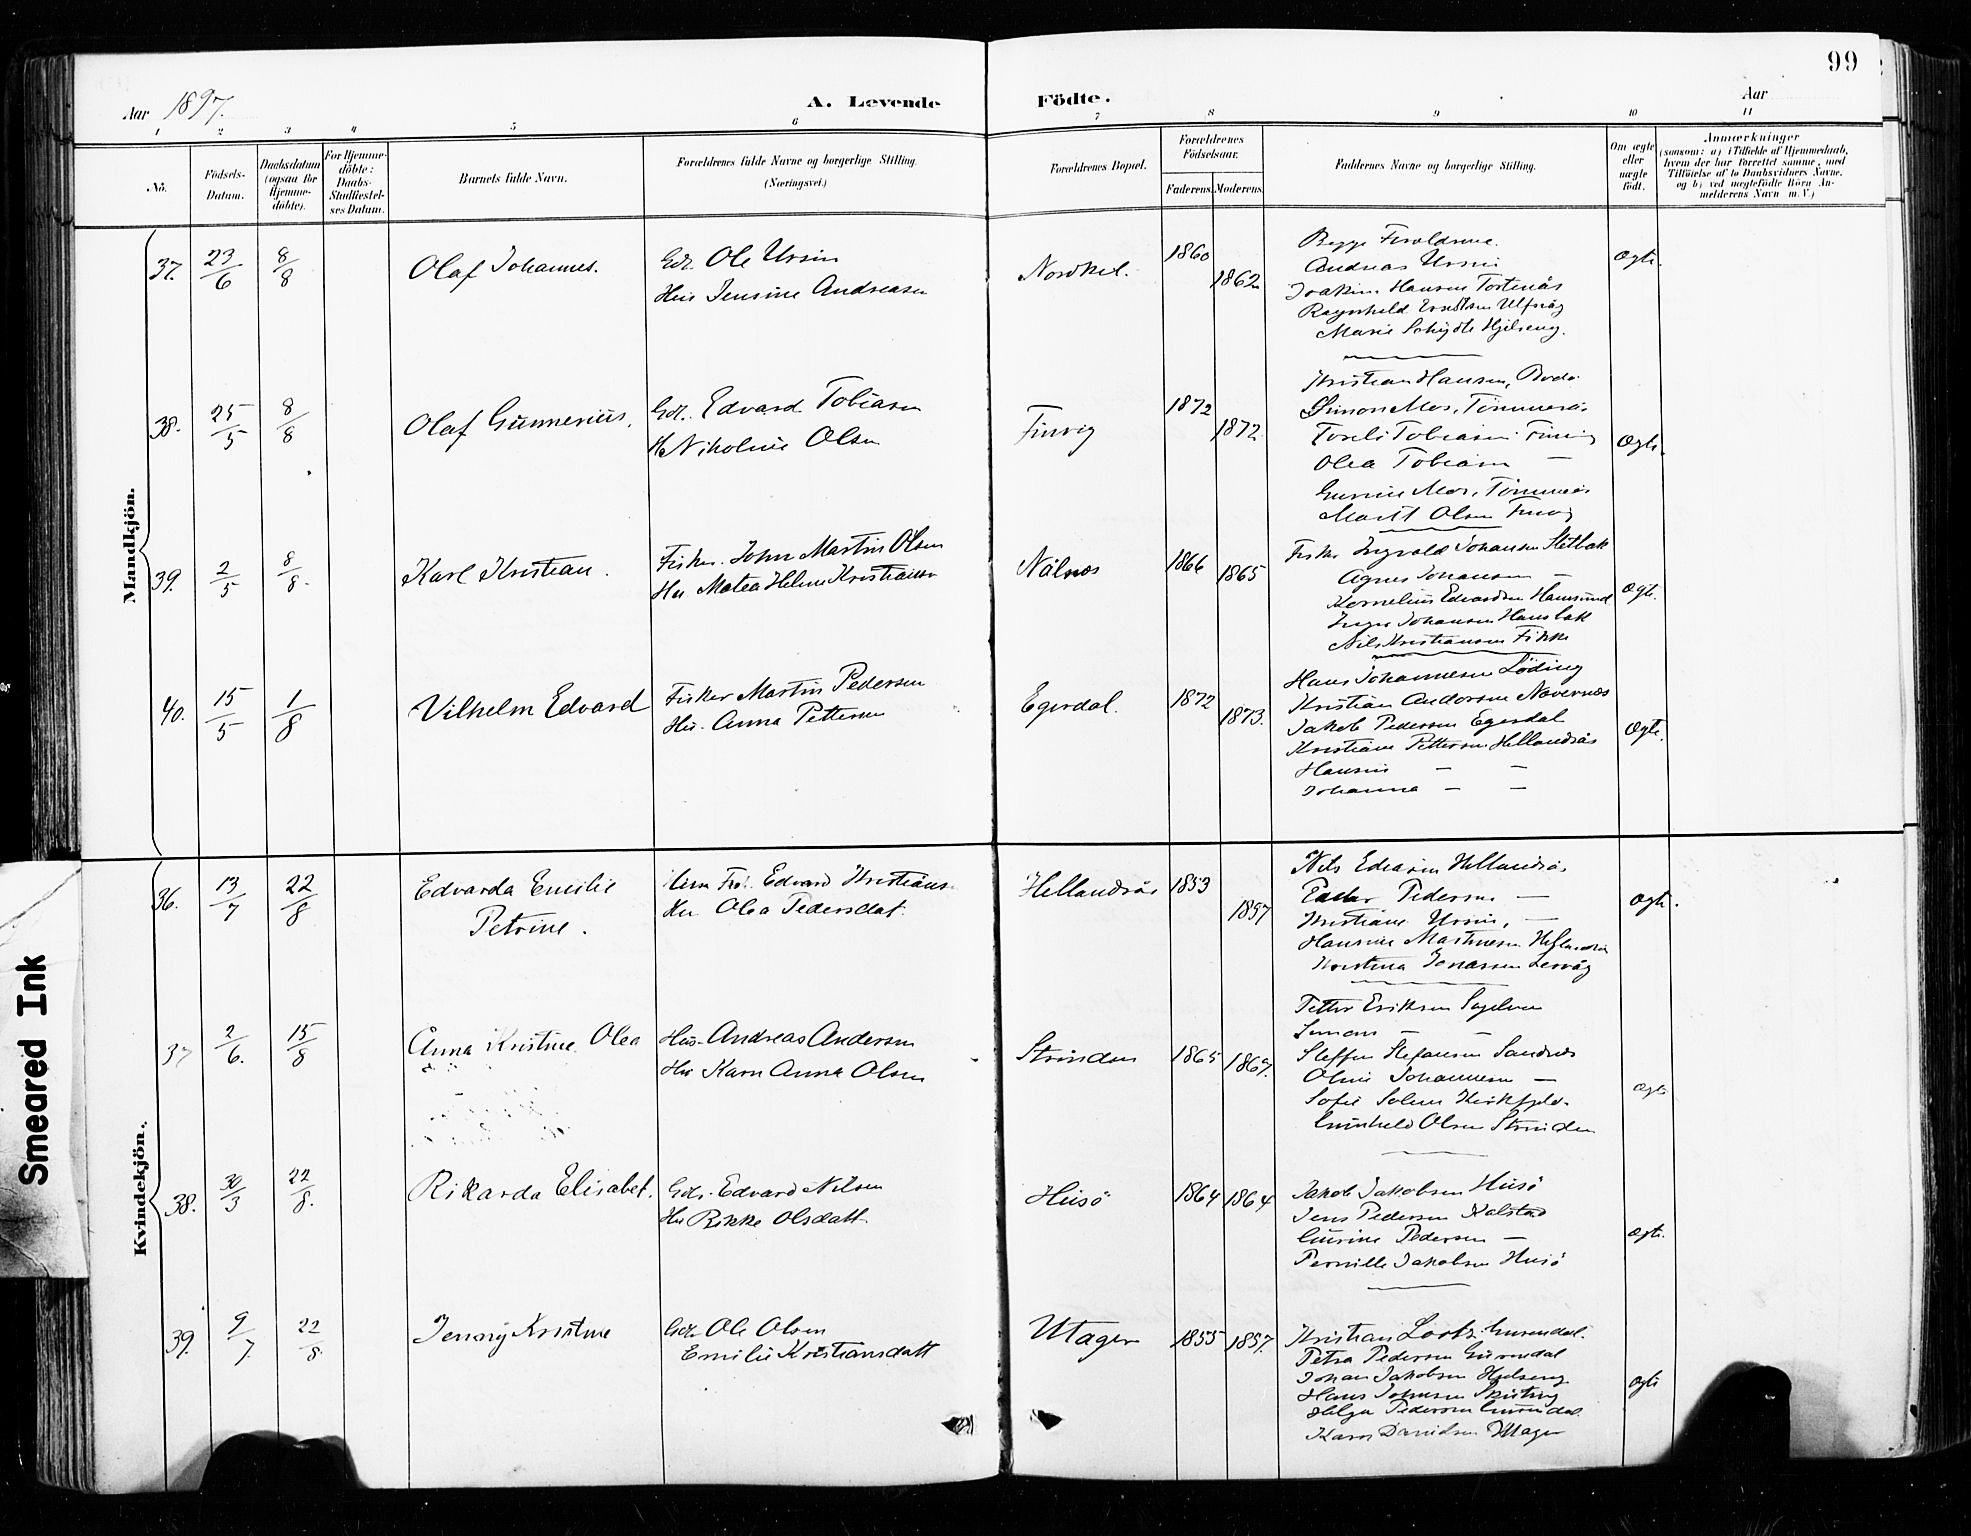 99
Aar 1897.
A. Levende Födte.
Aar
1 2 3 4 5 6 7 8 9 10 11
No.
Födsels-Datum.
Daabsdatum (ogsaa for Hjemme-döbte).
For Hjemme-döbte: Daabs-Stadfæstel-ses Datum.
Barnets fulde Navn.
Forældrenes fulde Navne og borgerlige Stilling. (Næringsvei.)
Forældrenes Bopæl.
Forældrenes Födselsaar.
Faderens. Moderens.
Faddernes Navne og borgerlige Stilling.
Om ægte eller uægte födt.
Anmærkninger
(saasom: a) i Tilfælde af Hjemmedaab, hvem der har forrettet samme, med Tilföielse af to Daabsvidners Navne, og b) ved uægtefödte Börn An-melderens Navn m. V.)
Mandkjön.
37. 23/6 8/8 Olaf Johannes. Gdr. Ole Ursin
Hu Jensine Andreasen
Nordkil. 1860 1862
Begge Forældrene.
Andreas Ursin
Joakim Hansen Tortenäs
Ragnhild Ulfsvåg
Marie Hjelseng.
Ægte.
38. 25/5 8/8 Olaf Gunnerius. Gdr. Edvard Tobiasen
Nikoline Olsen
Finvig 1872 1872
Kristian Hansen, Bodö
Simon Mos, Tömmerås
Tobiasen Finvig
Olea Tobiasen —
Mos, Tömmerås
Marit Olsen Finvig
Ægte.
39. 2/5 8/8. Karl Kristian. Fisker. John Martin Olsen
Hu. Matea Heline Kristiansen
Nålnes 1866 1865
Fisker Ingvald Johansen Sletbak
Agnes Johansen —
Kornelius Edvardsen Hamsund
Johansen Hansbak
Nils Kristiansen Fikke
Ægte.
40. 15/5 1/8 Vilhelm Edvard Fisker Martin Pedersen
Hu. Anna Pettersen
Egerdal. 1872 1873.
Hans Johannesen Löding
Kristian Andorsen Navernes
Jakob Pedersen Egerdal
Kristiane Pettersen Hellandsås
Hansine — —
Johanna — —
Ægte.
Kvindekjön.
36. 13/7 22/8 Edvarda Emilie
Petrine.
Edvard Kristians.
Hu Olea Pedersdat.
Hellandsås 1853 1857
Nils Hellandsås
Peder Pedersen —
Kristiane Ursin, —
Hansine Martinesen
Kristina Jonassen Lervåg
Ægte.
37 2/6. 15/8 Anna Kristine Olea Hus. Andreas Andersen
Hu Karn Anna Olsen
Strinden 1865 1867.
Petter Eriksen Sagelven
Simon — —
Steffen Stefansen Sandnes
Oline Johannesen —
Sofie Solem
Gunhild Olsen Strinden
Ægte
38. 30/3 22/8. Rikarda Elisabet. Gdr. Edvard Nilsen
Hu Rikke Olsdatt.
Husö 1864 1864
Jakob Jakobsen Husö
Jens Pedersen Kalstad
Gurine Pedersen —
Pernille Jakobsen Husö
Ægte.
39. 9/7. 22/8 Jenny Kristine Gdr. Ole Olsen
Emilie Kristiansdatt
Utager 1855 1857.
Kristian Gurendal.
Petra Pedersen Gurendal
Johan Jakobsen Hjelseng
Hans Johnsen
Helga Pedersen Gurendal
Karn Davidsen Utager
Ægte
Smeared Ink